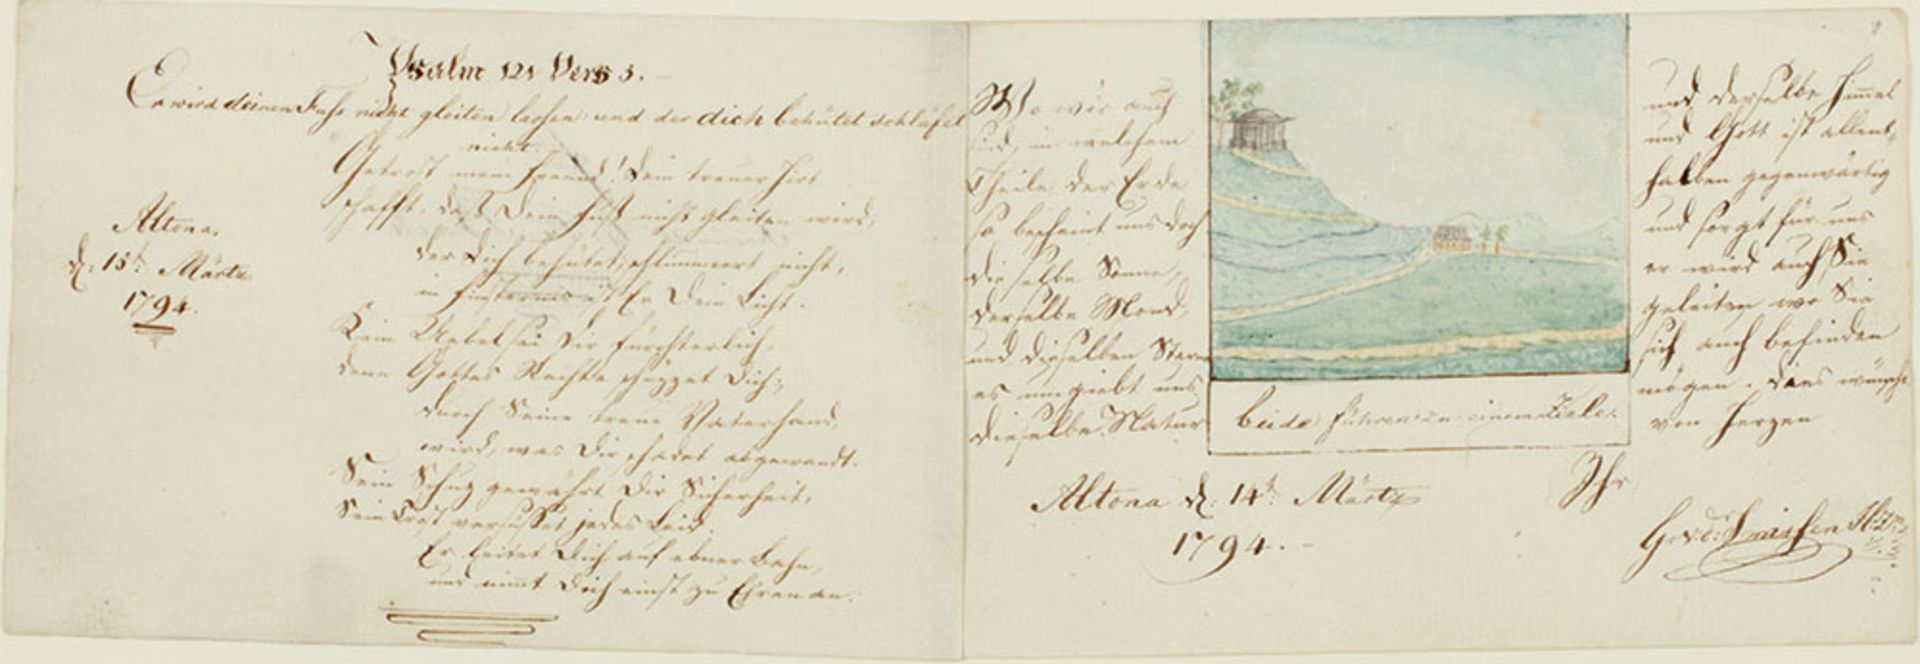 Psalm 121 Vers 3.
Er wird deinen Fuhs nicht gleiten lassen: und der dich behütet schläfet
nicht.
Getrost mein Freund! Dein treuer Hirt
schafft, daß Dein Fuß nicht gleiten wird,
der Dich behütet, schlummert nicht,
in Finsternis ist Er Dein Licht.
Kein Uebel sei Dir fürchterlich,
denn Gottes Rechte schüzzet Dich;
durch Seine treue Vaterhand,
wird, was Dir schadet abgewandt.
Sein Schuz gewährt Dir Sicherheit,
Sein Trost versüsset jedes Leid.
Er leitet Dich auf ebner Bahn,
und nimt Dich einst zu Ehren an.
Altona,
d: 15t. Märtz
1794.
Wo wir auch
sind, in welchem
Theile der Erde
so bescheint uns doch
dieselbe Sonne,
derselbe Mond,
und dieselben Sterne
es umgiebt uns
dieselbe Natur
beide führen zu einem Ziele.
und derselbe Himmel
und Gott ist allent-
halben gegenwärtig
und sorgt für uns
er wird auch Sie
geleiten wo Sie
sich auch befinden
mögen. dies wünscht
von Herzen
Altona d: 14t. Märtz
1794.
Ihr